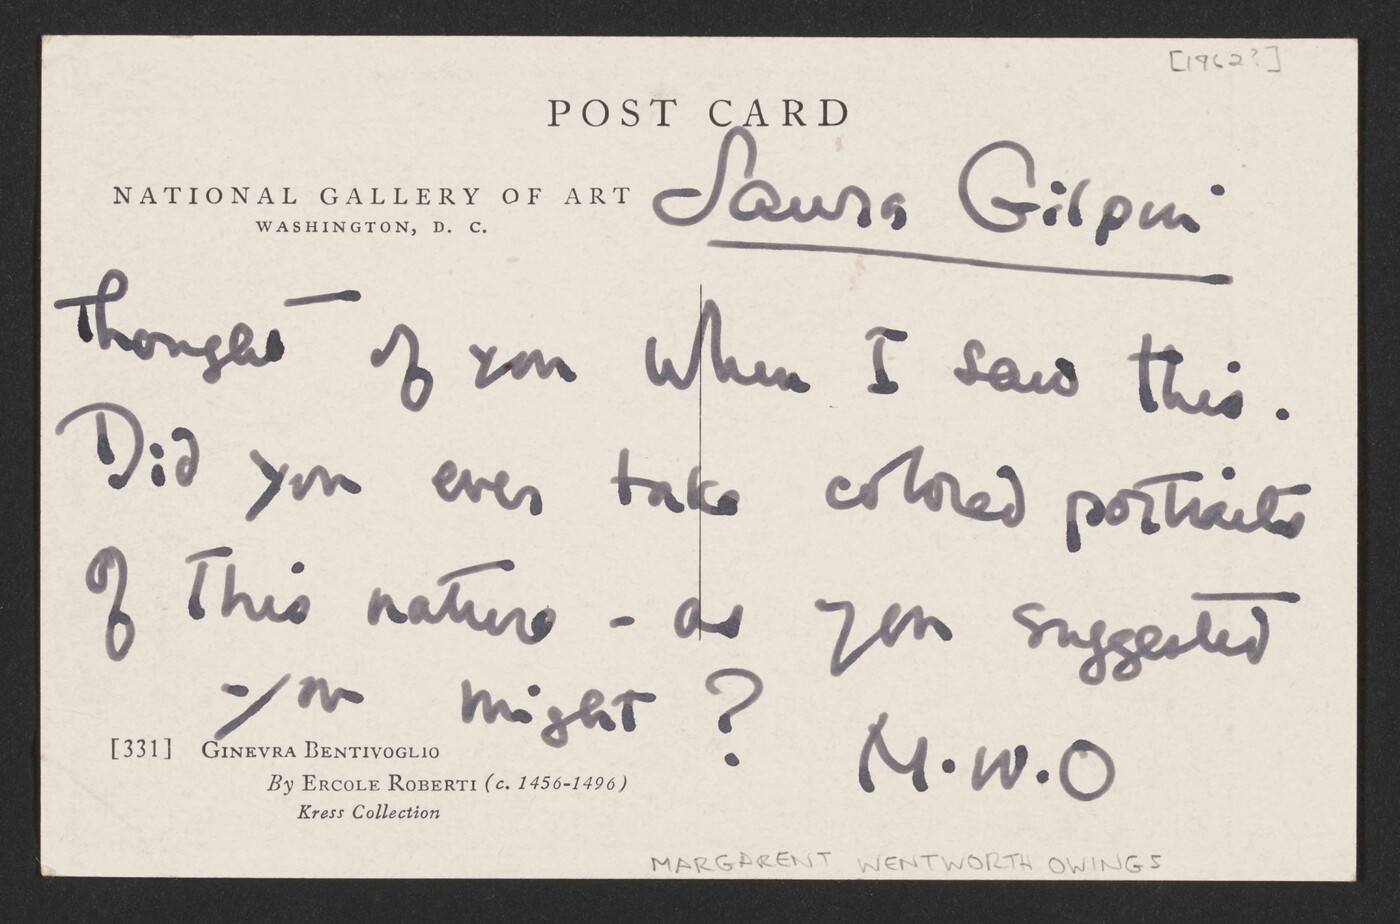 [1962?]
POST CARD
NATIONAL GALLERY OF ART
WASHINGTON, D. C.
Laura Gilpin
Thought of you when I saw this.
Did you ever take colored portraits
of this nature - as you suggested
you might?
M.W.O
[331] GINEVRA BENTIVOGLIO
By ERCOLE ROBERTI (c. 1456-1496)
Kress Collection
MARGARENT WENTWORTH OWINGS